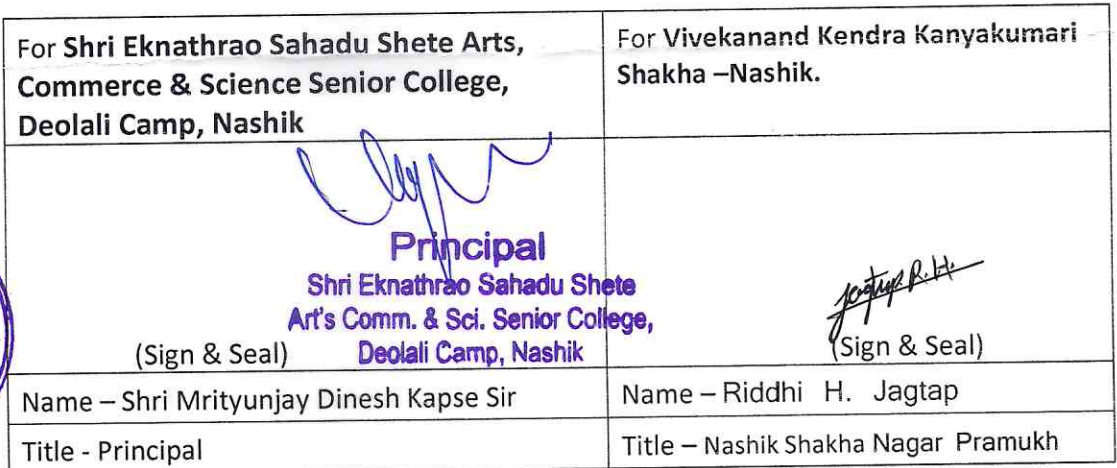 For Shri Eknathrao Sahadu Shete Arts,
Commerce & Science Senior College,
Deolali Camp, Nashik
For Vivekanand Kendra Kanyakumari
Shakha –Nashik.
Principal
Shri Eknathrao Sahadu Shete
Art's Comm. & Sci. Senior College,
Deolali Camp, Nashik
(Sign & Seal)
Jagtap R.H.
(Sign & Seal)
Name – Shri Mrityunjay Dinesh Kapse Sir
Name – Riddhi H. Jagtap
Title - Principal
Title – Nashik Shakha Nagar Pramukh